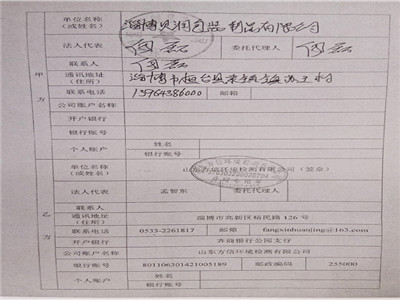 甲方
单位名称
(或姓名) 淄博贝润园艺制品有限公司
法人代表 闫磊 委托代理人 闫磊
联系人 闫磊
通讯地址
(住所) 淄博市桓台县果里镇
联系电话 13964386000 邮箱
公司账户名称
开户银行
银行账号
个人账户 姓名
银行账号
乙方
单位名称
(或姓名) 山东方信环境检测有限公司(签章)
法人代表 孟智东 委托代理人
联系人
通讯地址
(住所) 淄博市高新区裕民路 126 号
联系电话 0533-2261817 邮箱 fangxinhuanjing@163.com
开户银行 齐商银行公园支行
公司账户名称 山东方信环境检测有限公司
银行账号 801106301421005189 邮政编码 255000
个人账户 姓名
银行账号